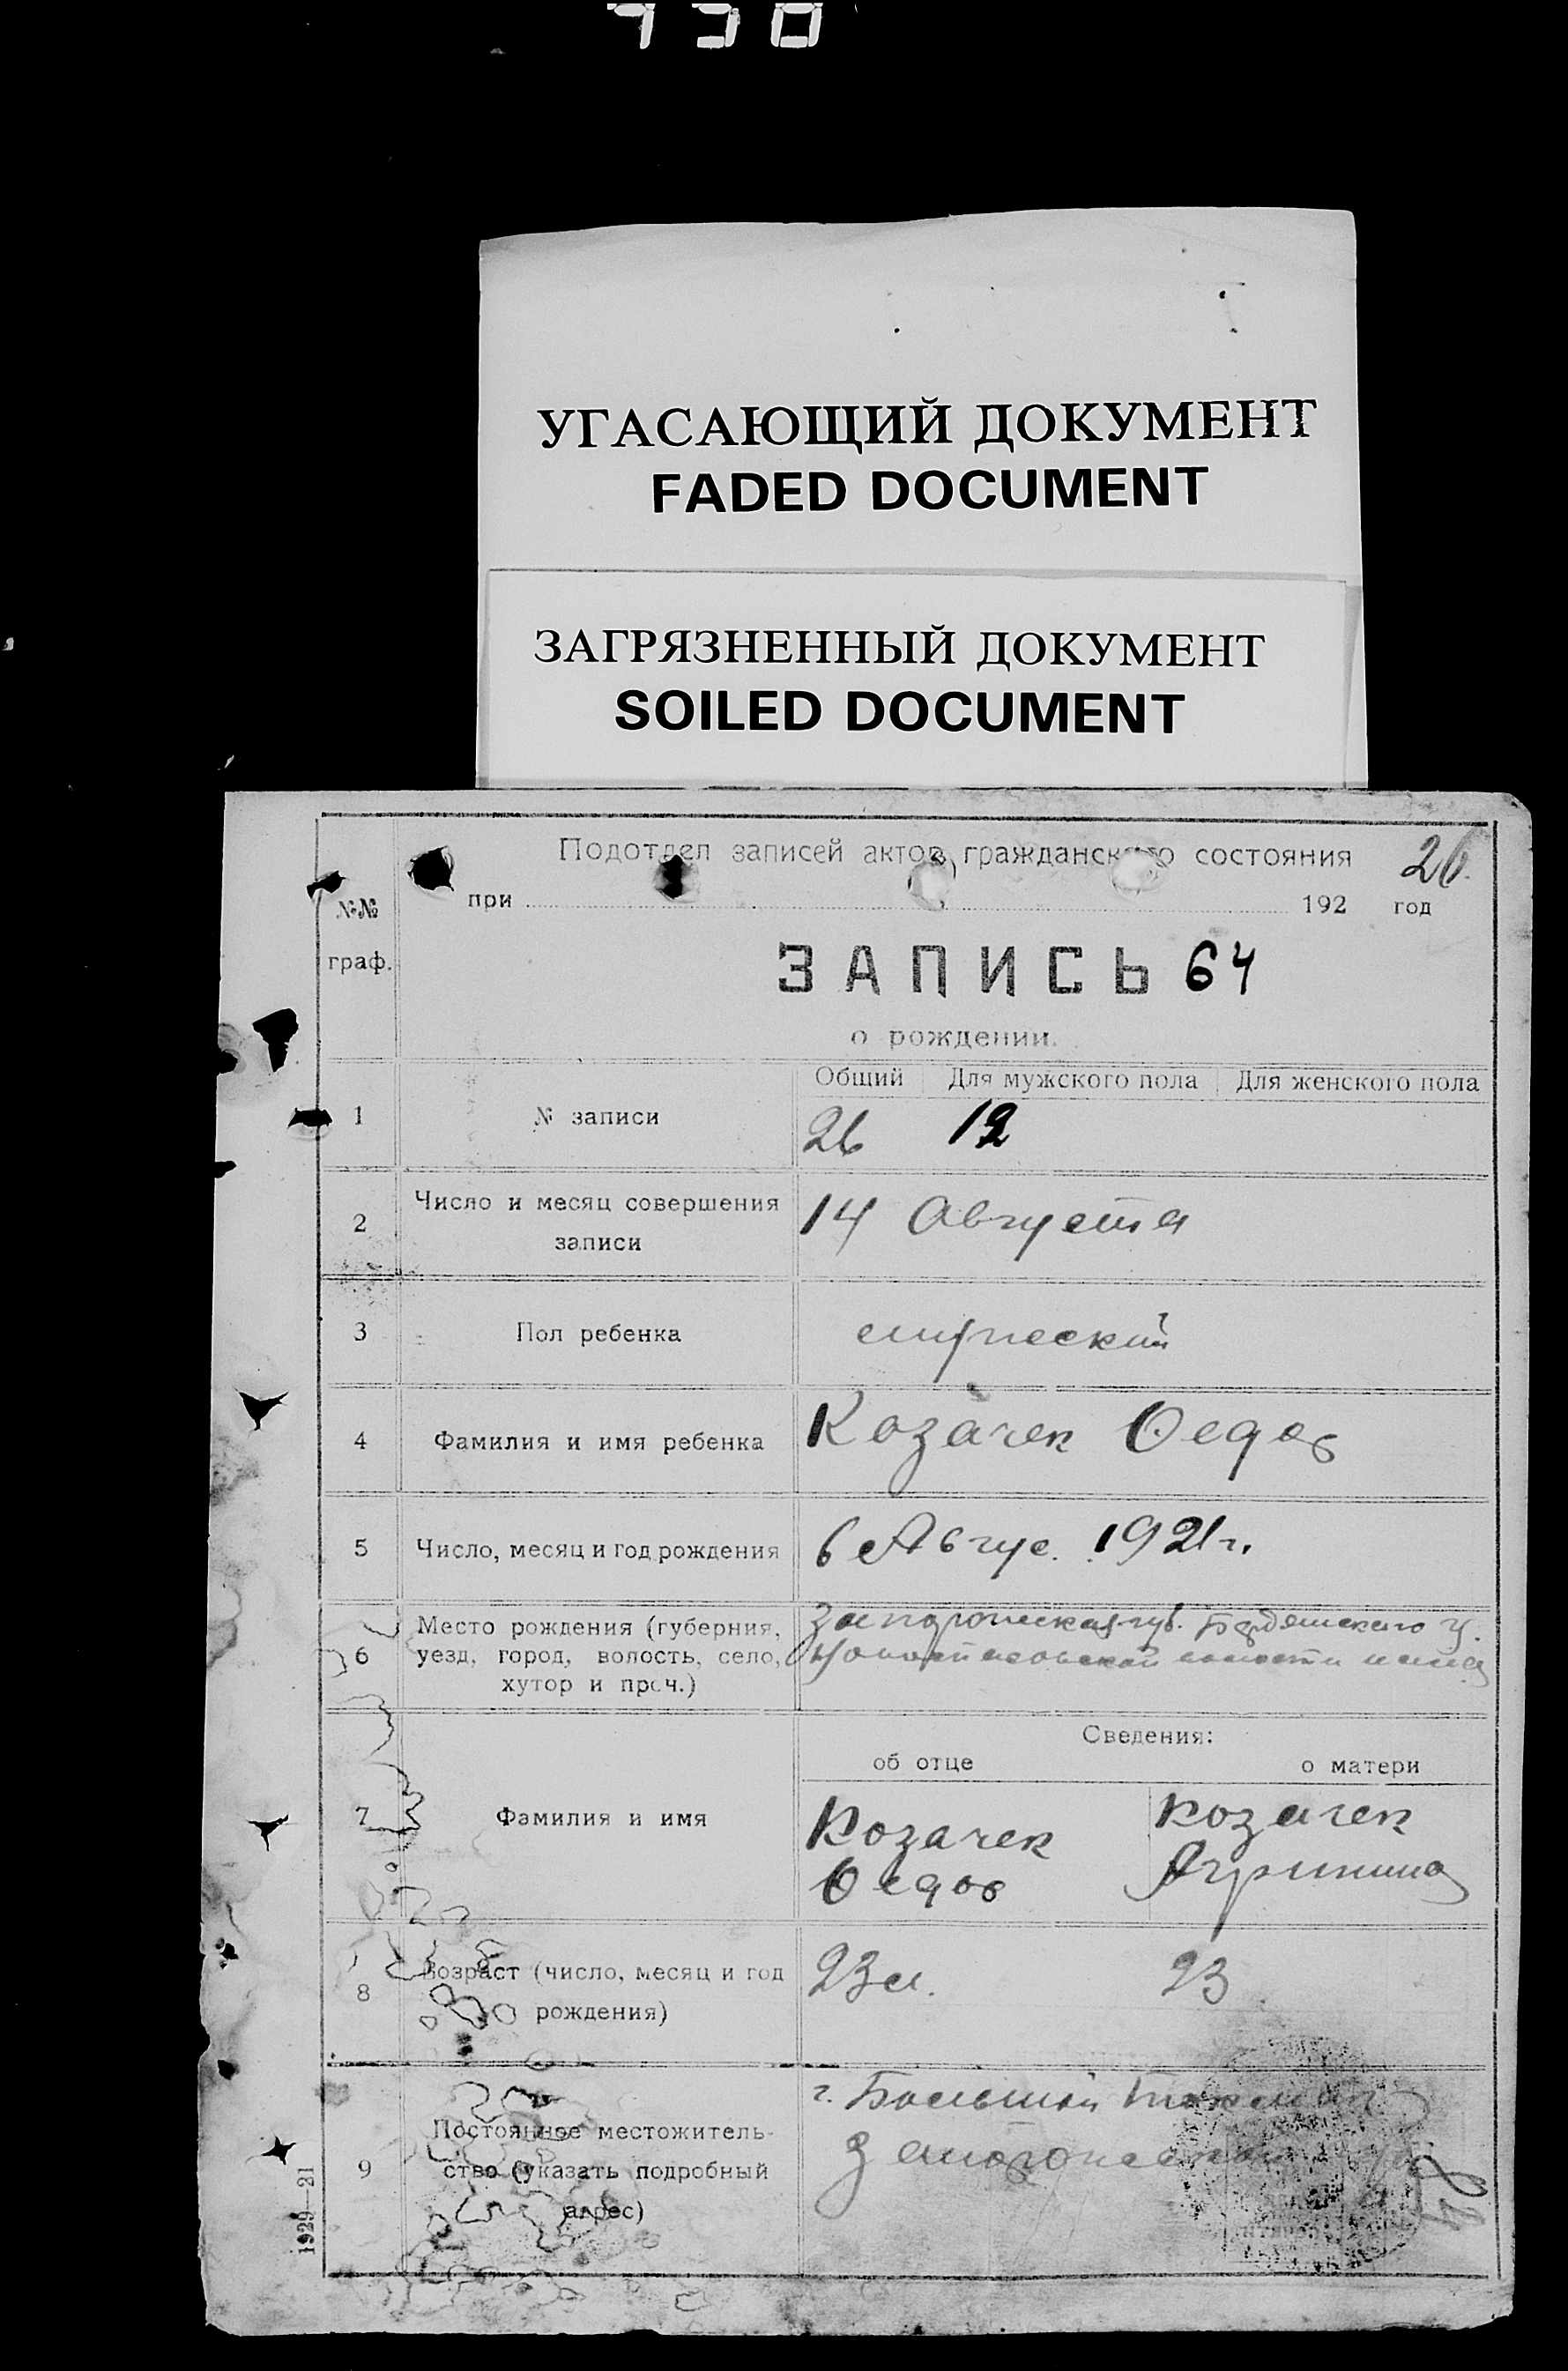 УГАСАЮЩИЙ ДОКУМЕНТ
FADED DOCUMENT
ЗАГРЯЗНЕННЫЙ ДОКУМЕНТ
SOILED DOCUMENT
Подотдел записей актов гражданского состояния 26
№№ при 192 год
граф.
ЗАПИСЬ 64
о рождении.
Общий Для мужского пола Для женского пола
1 № записи 26 12
2 Число и месяц совершения
записи
14 Августа
3 Пол ребенка мужеский
4 Фамилия и имя ребенка Козачек Ѳедор
5 Число, месяц и год рождения 6 Авгус. 1921 г.
6 Место рождения (губерния,
уезд, город, волость, село,
хутор и проч.)
Запорожская губ. Бердянскаго у.
волости
Сведения:
об отце о матери
7 Фамилия и имя
Козачек Козачек
Ѳедор Агрипина
8 Возраст (число, месяц и год
рождения)
23 23
9 Постоянное местожитель-
ство (указать подробный
адрес)
г. Большой Токмак
1929—21